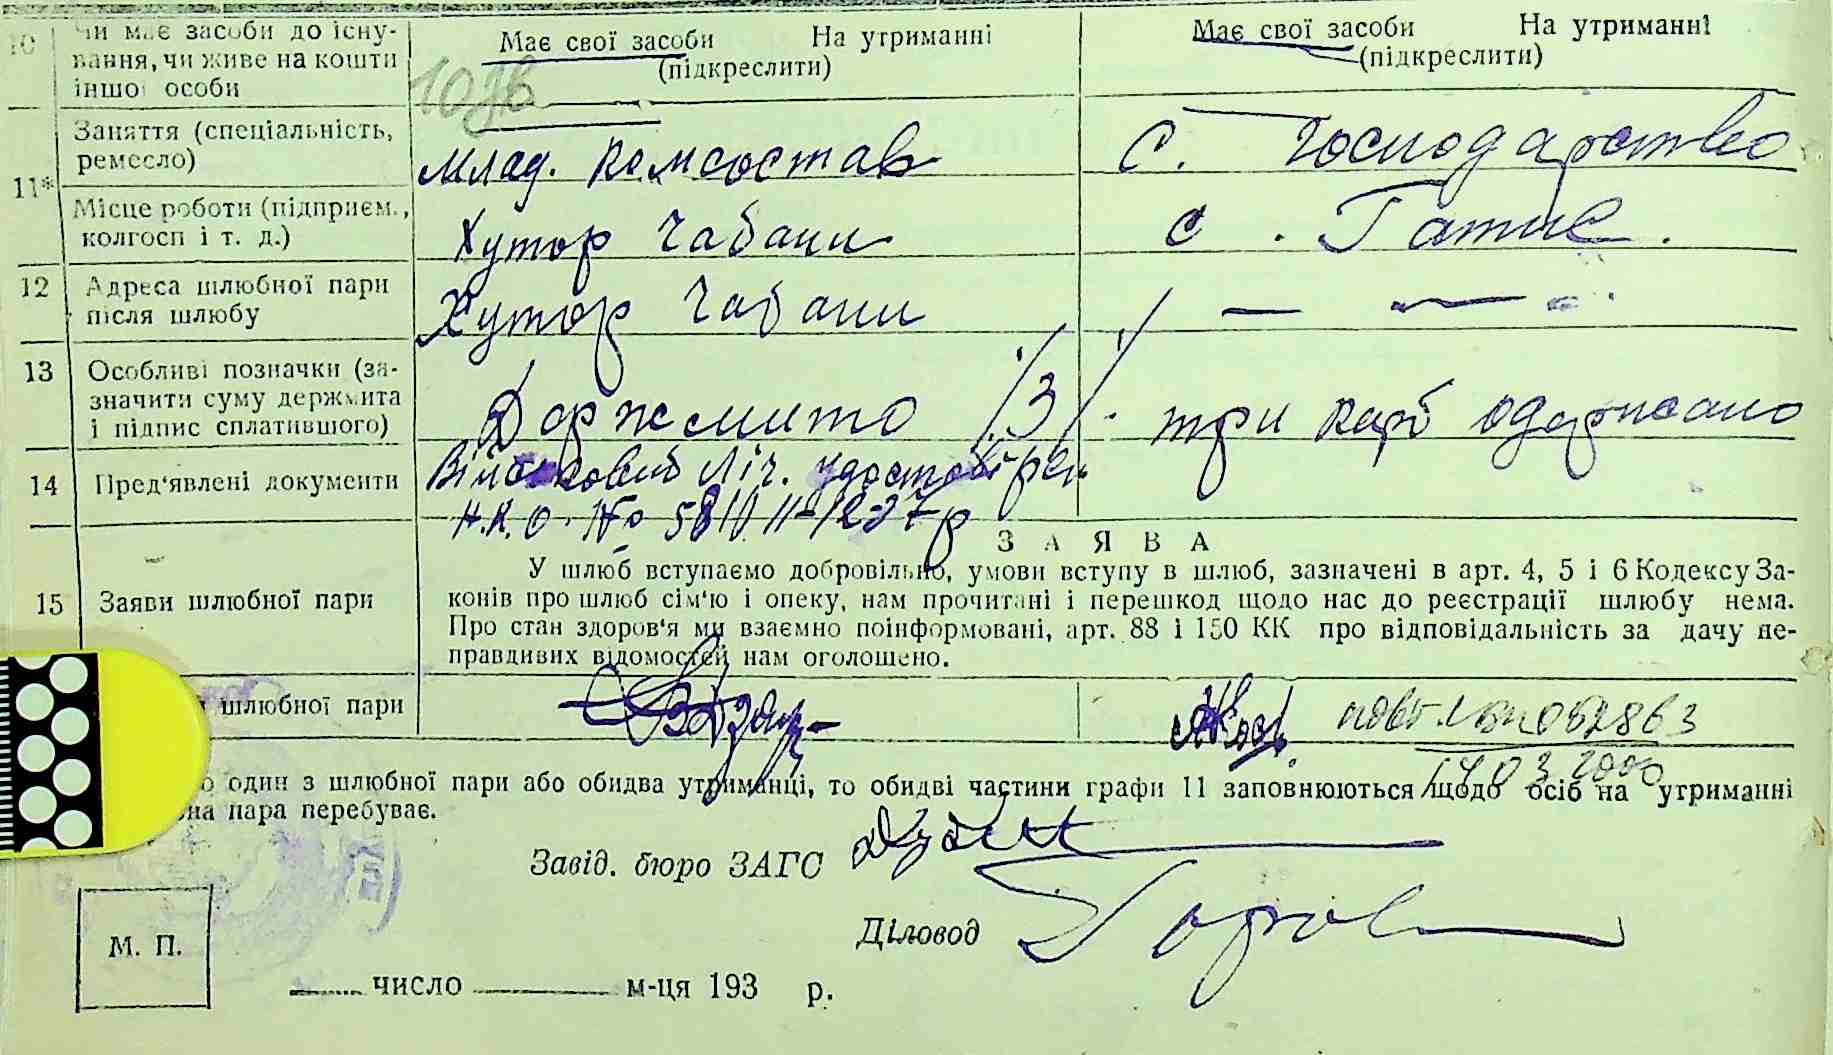 10 Чи має засоби до існу-
вання, чи живе на кошти
іншої особи
Має свої засоби На утриманні
(підкреслити)
Має свої засоби На утриманні
(підкреслити)
11* Заняття (спеціальність,
ремесло)
млад. комсостав
с. господарство
Місце роботи (підприєм.,
колгосп і т. д.)
Хутор Чабани
с. Гатне.
12 Адреса шлюбної пари
після шлюбу
Хутор Чабани
— — "
13 Особливі позначки (за-
значити суму держмита
і підпис сплатившого)
Доржмито /3/. три карб одержано
14 Пред'явлені документи
Військовий Літ.
Н.К.О. No
З А Я В А
15 Заяви шлюбної пари
У шлюб вступаємо добровільно, умови вступу в шлюб, зазначені в арт. 4, 5 і 6 Кодексу За-
конів про шлюб сім'ю і опеку, нам прочитані і перешкод щодо нас до реєстрації шлюбу нема.
Про стан здоров'я ми взаємно поінформовані, арт. 88 і 150 КК про відповідальність за дачу не-
правдивих відомостей нам оголошено.
шлюбної пари
один з шлюбної пари або обидва утриманці, то обидві частини графи 11 заповнюються щодо осіб на утриманні
пара перебуває.
Завід. бюро ЗАГС
Діловод
М. П.
число м-ця 193 р.